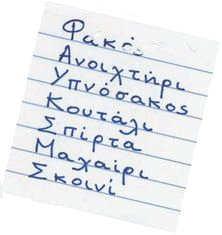 Φακός
Ανοιχτήρι
Υπνόσακος
Κουτάλι
Σπίρτα
Μαχαίρι
Σκοινί